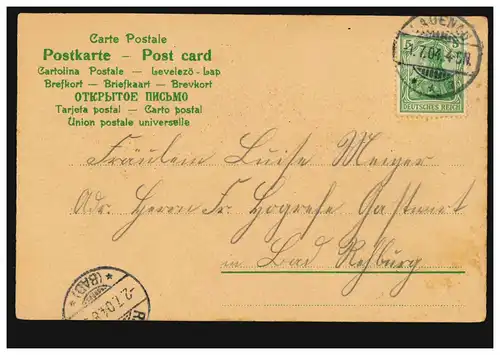 Carte Postale
Postkarte – Post card
Cartolina Postale – Levelezö-Lap
Brefkort – Briefkaart – Brevkort
ОТКРЫТОЕ ПИСЬМО
Tarjeta postal – Carto postal
Union postale universelle
LAUENAU
1.7.04. 4-5N.
5
DEUTSCHES REICH
Fräulein Luise Meyer
Adr. Herrn Fr. Hogrefe Gastwirt
in Bad Rehburg
(BAD)
-2.7.04.8
R